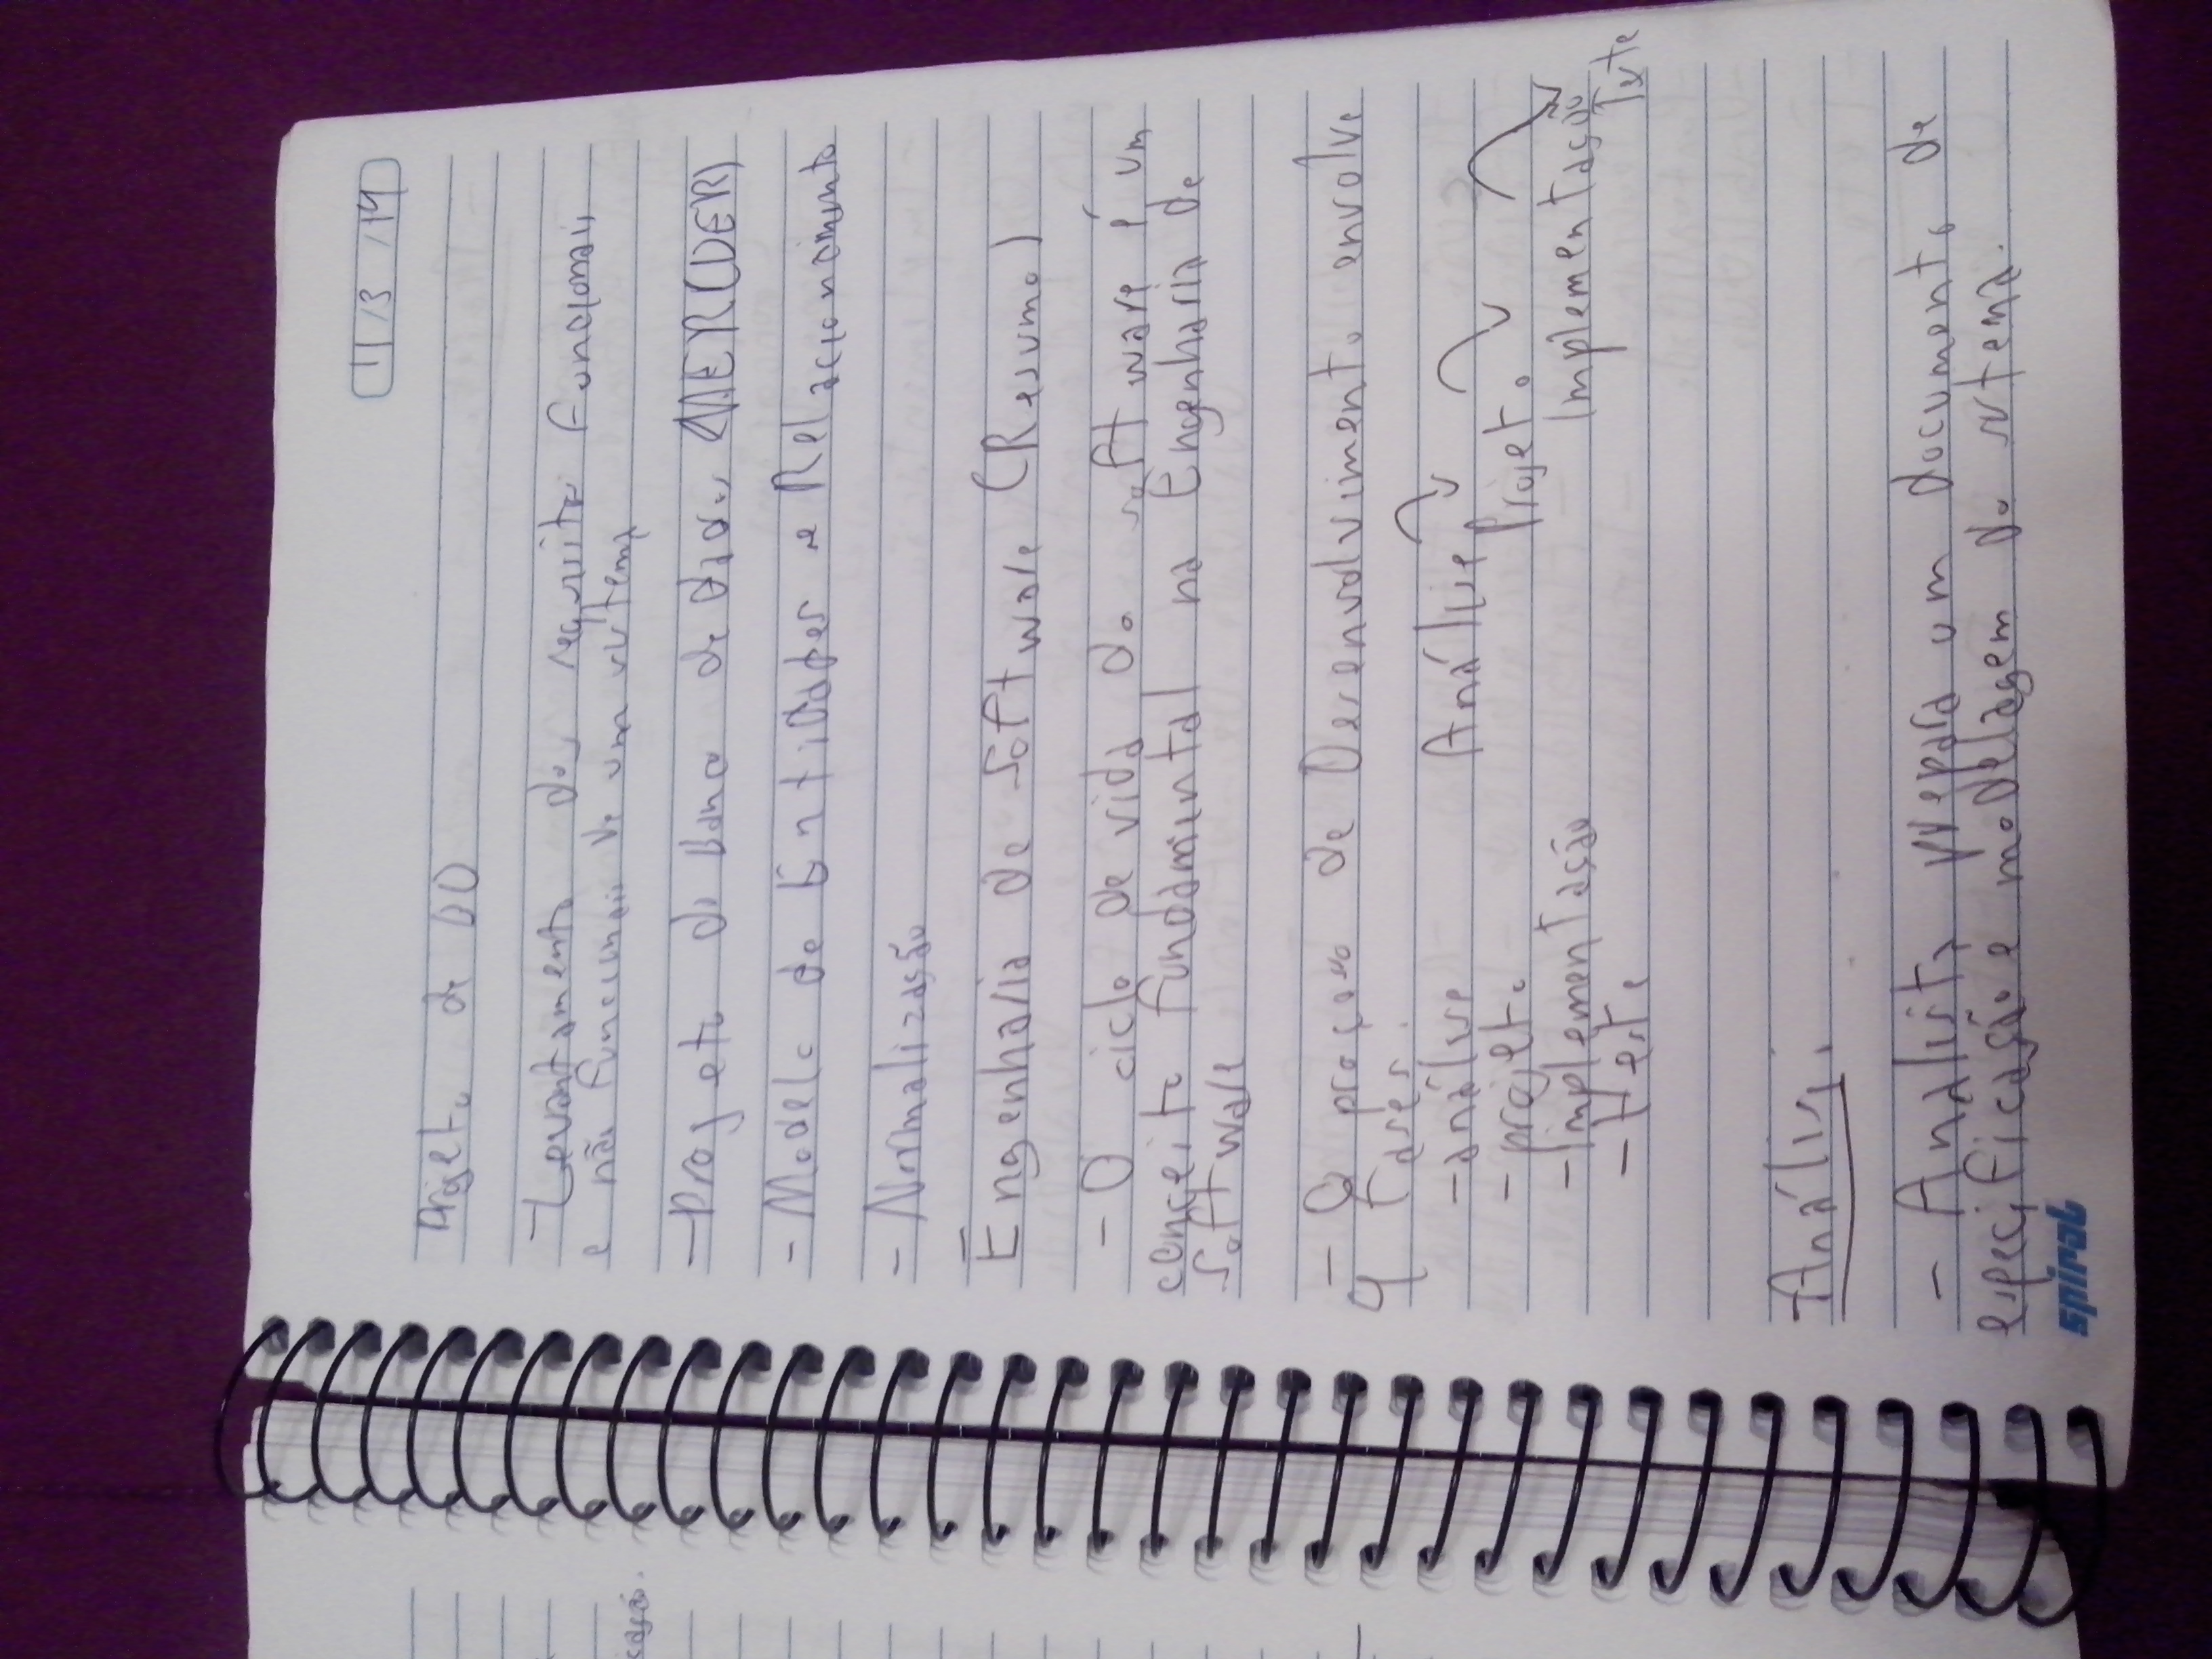 11/3/19
Projeto de BD
- Levantamento dos requisitos Funcionais
e não funcionais de um sistema
- Projeto do Banco de dados MER(DER)
- Modelo de Entidades e Relacionamento
- Normalização
Engenharia de Software (Resumo)
- O ciclo de vida do software é um
conceito fundamental na Engenharia de
Software
- O processo de Desenvolvimento envolve
4 Fases.
- análise Análise
- projeto Projeto
- Implementação Implementação
- teste Teste
- Análise:
- Analista prepara um documento de
especificação e modelagem do sistema.
spiral